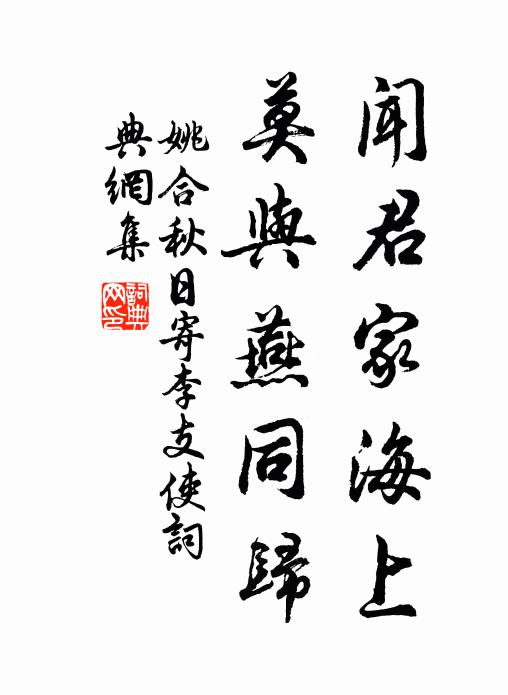 聞君家海上
莫與燕同歸
姚合秋日寄李支使詞
典網集
詞典
网印